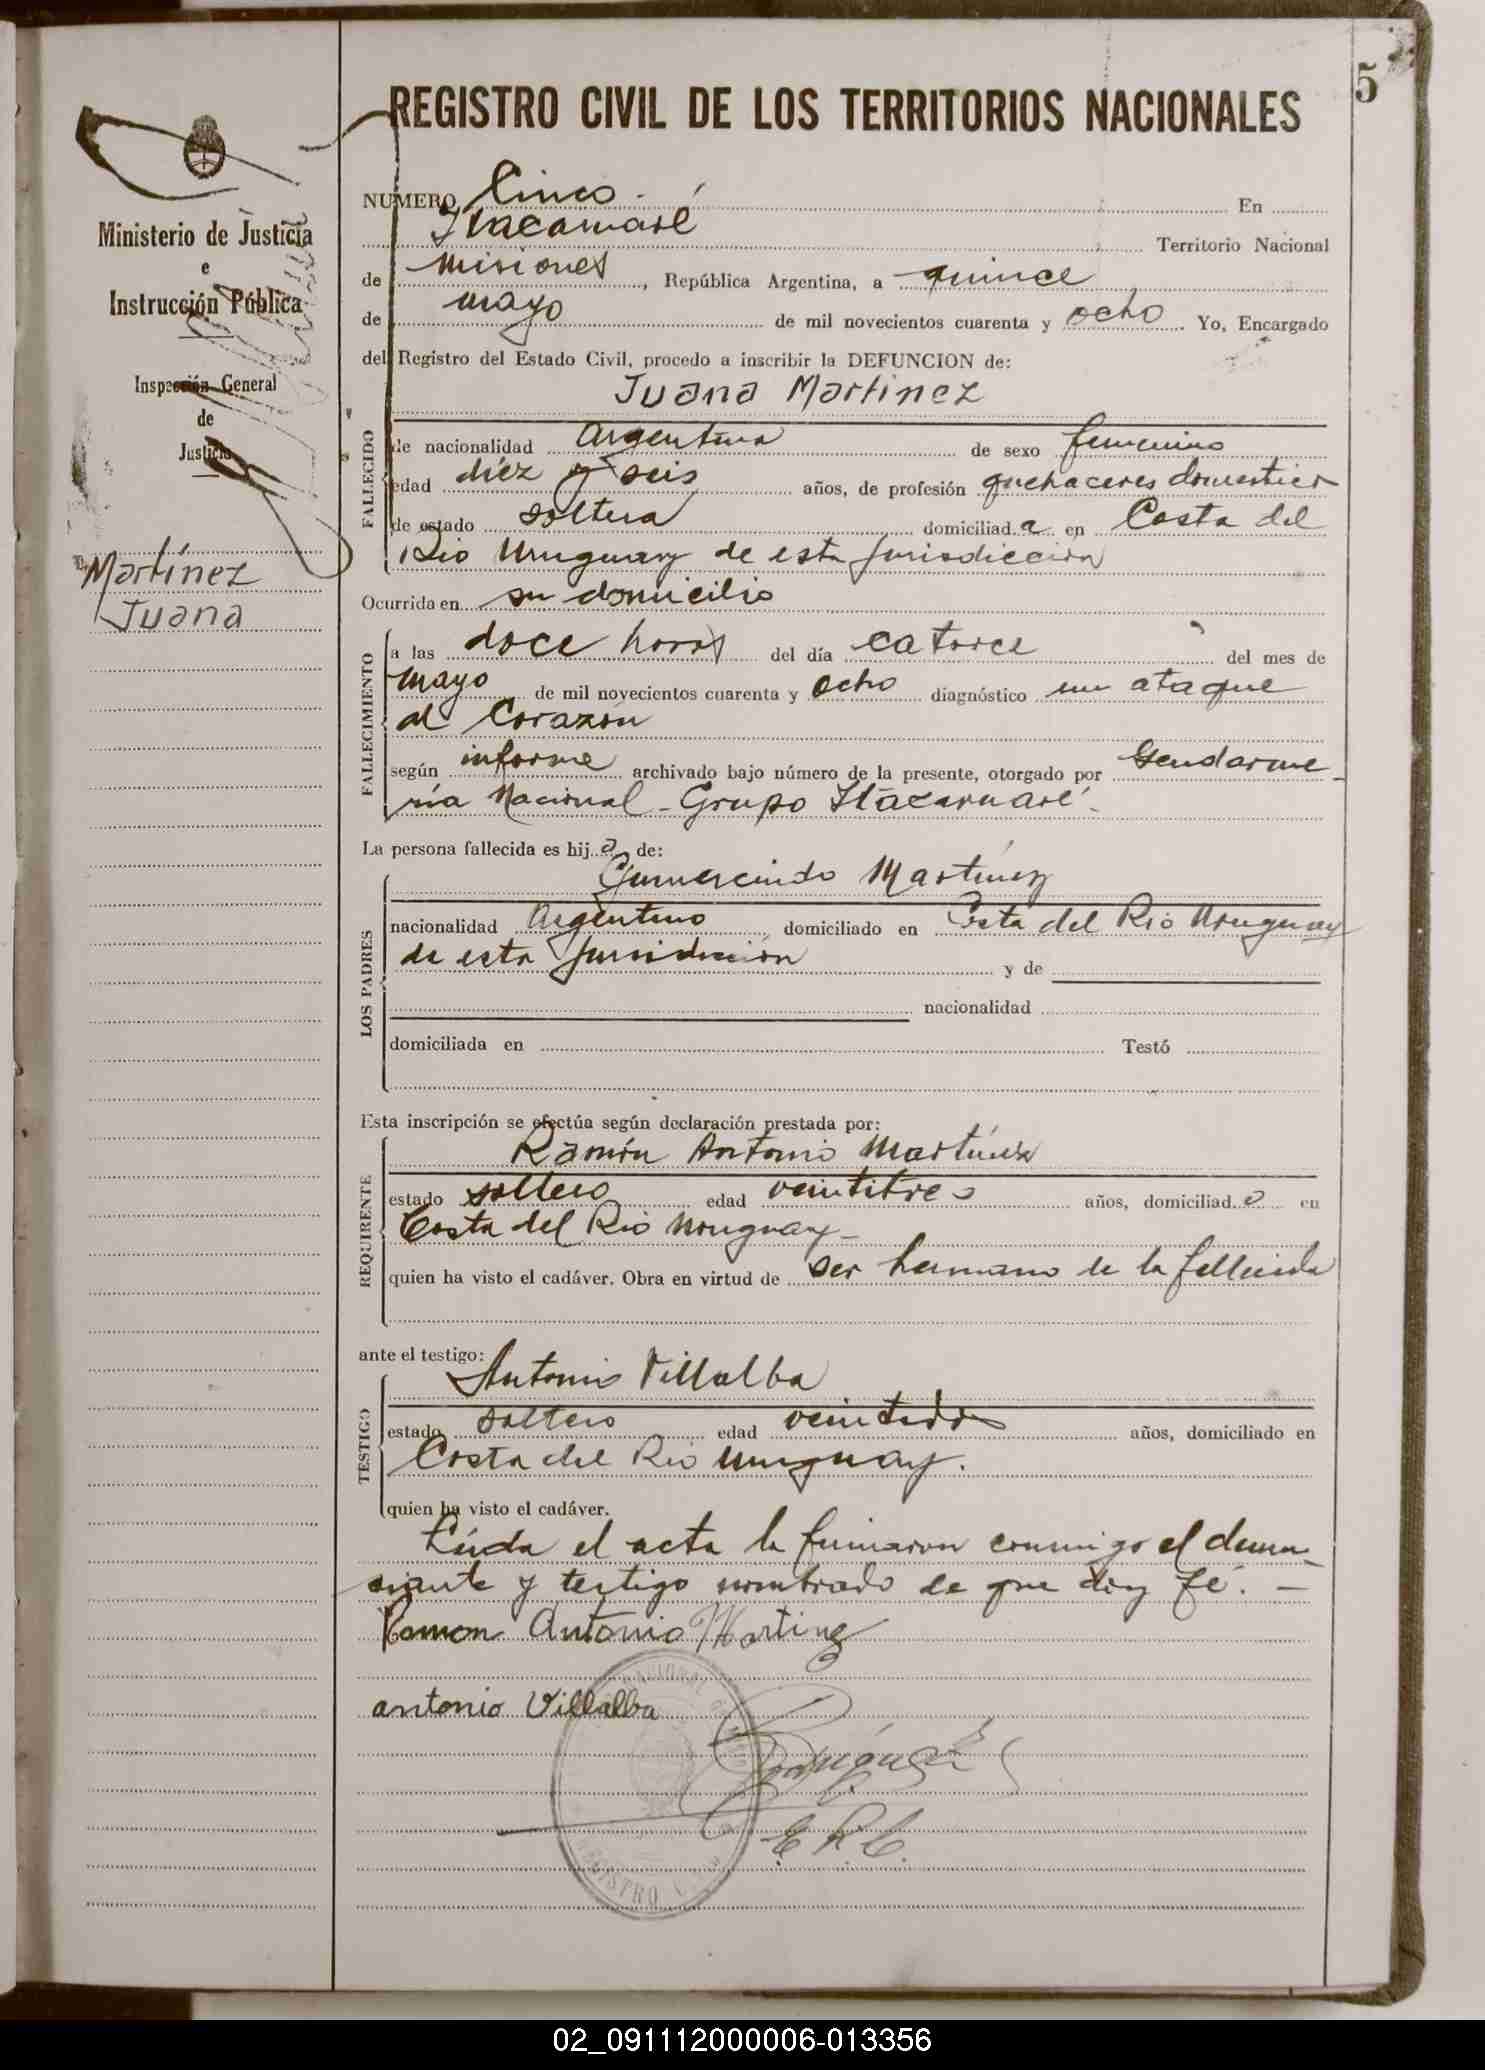 5
REGISTRO CIVIL DE LOS TERRITORIOS NACIONALES
Ministerio de Justicia
e
Instrucción Pública
Inspección General
de
Justicia
Martínez
Juana
NUMERO Cinco.- En
Itacaruaré Territorio Nacional
de Misiones, República Argentina, a quince
de mayo de mil novecientos cuarenta y ocho. Yo, Encargado
del Registro del Estado Civil, procedo a inscribir la DEFUNCION de:
Juana Martinez
FALLECIDO
de nacionalidad Argentina de sexo femenino
edad diez y seis años, de profesión quehaceres domestico
de estado soltera domiciliada en Costa del
Rio Uruguay de esta jurisdicción
Ocurrida en su domicilio
FALLECIMIENTO
a las doce horas del día catorce del mes de
mayo de mil novecientos cuarenta y ocho diagnóstico un ataque
al Corazón
según informe archivado bajo número de la presente, otorgado por Gendarme-
ría Nacional - Grupo Itacaruaré.-
La persona fallecida es hija de:
LOS PADRES
Gumercindo Martínez
nacionalidad Argentino domiciliado en Costa del Rio Uruguay
de esta jurisdicción y de
nacionalidad
domiciliada en Testó
Esta inscripción se efectúa según declaración prestada por:
REQUIRENTE
Ramón Antonio Martínez
estado soltero edad veintitres años, domiciliado en
Costa del Rio Uruguay-
quien ha visto el cadáver. Obra en virtud de ser hermano de la fallecida
ante el testigo:
TESTIGO
Antonio Villalba
estado soltero edad veintidos años, domiciliado en
Costa del Rio Uruguay.
quien ha visto el cadáver.
Leida el acta la firmaron conmigo el denun-
ciante y testigo nombrado de que doy fé. -
Ramon Antonio Martinez
antonio Villalba
E.R.C.
REGISTRO
02_091112000006-013356